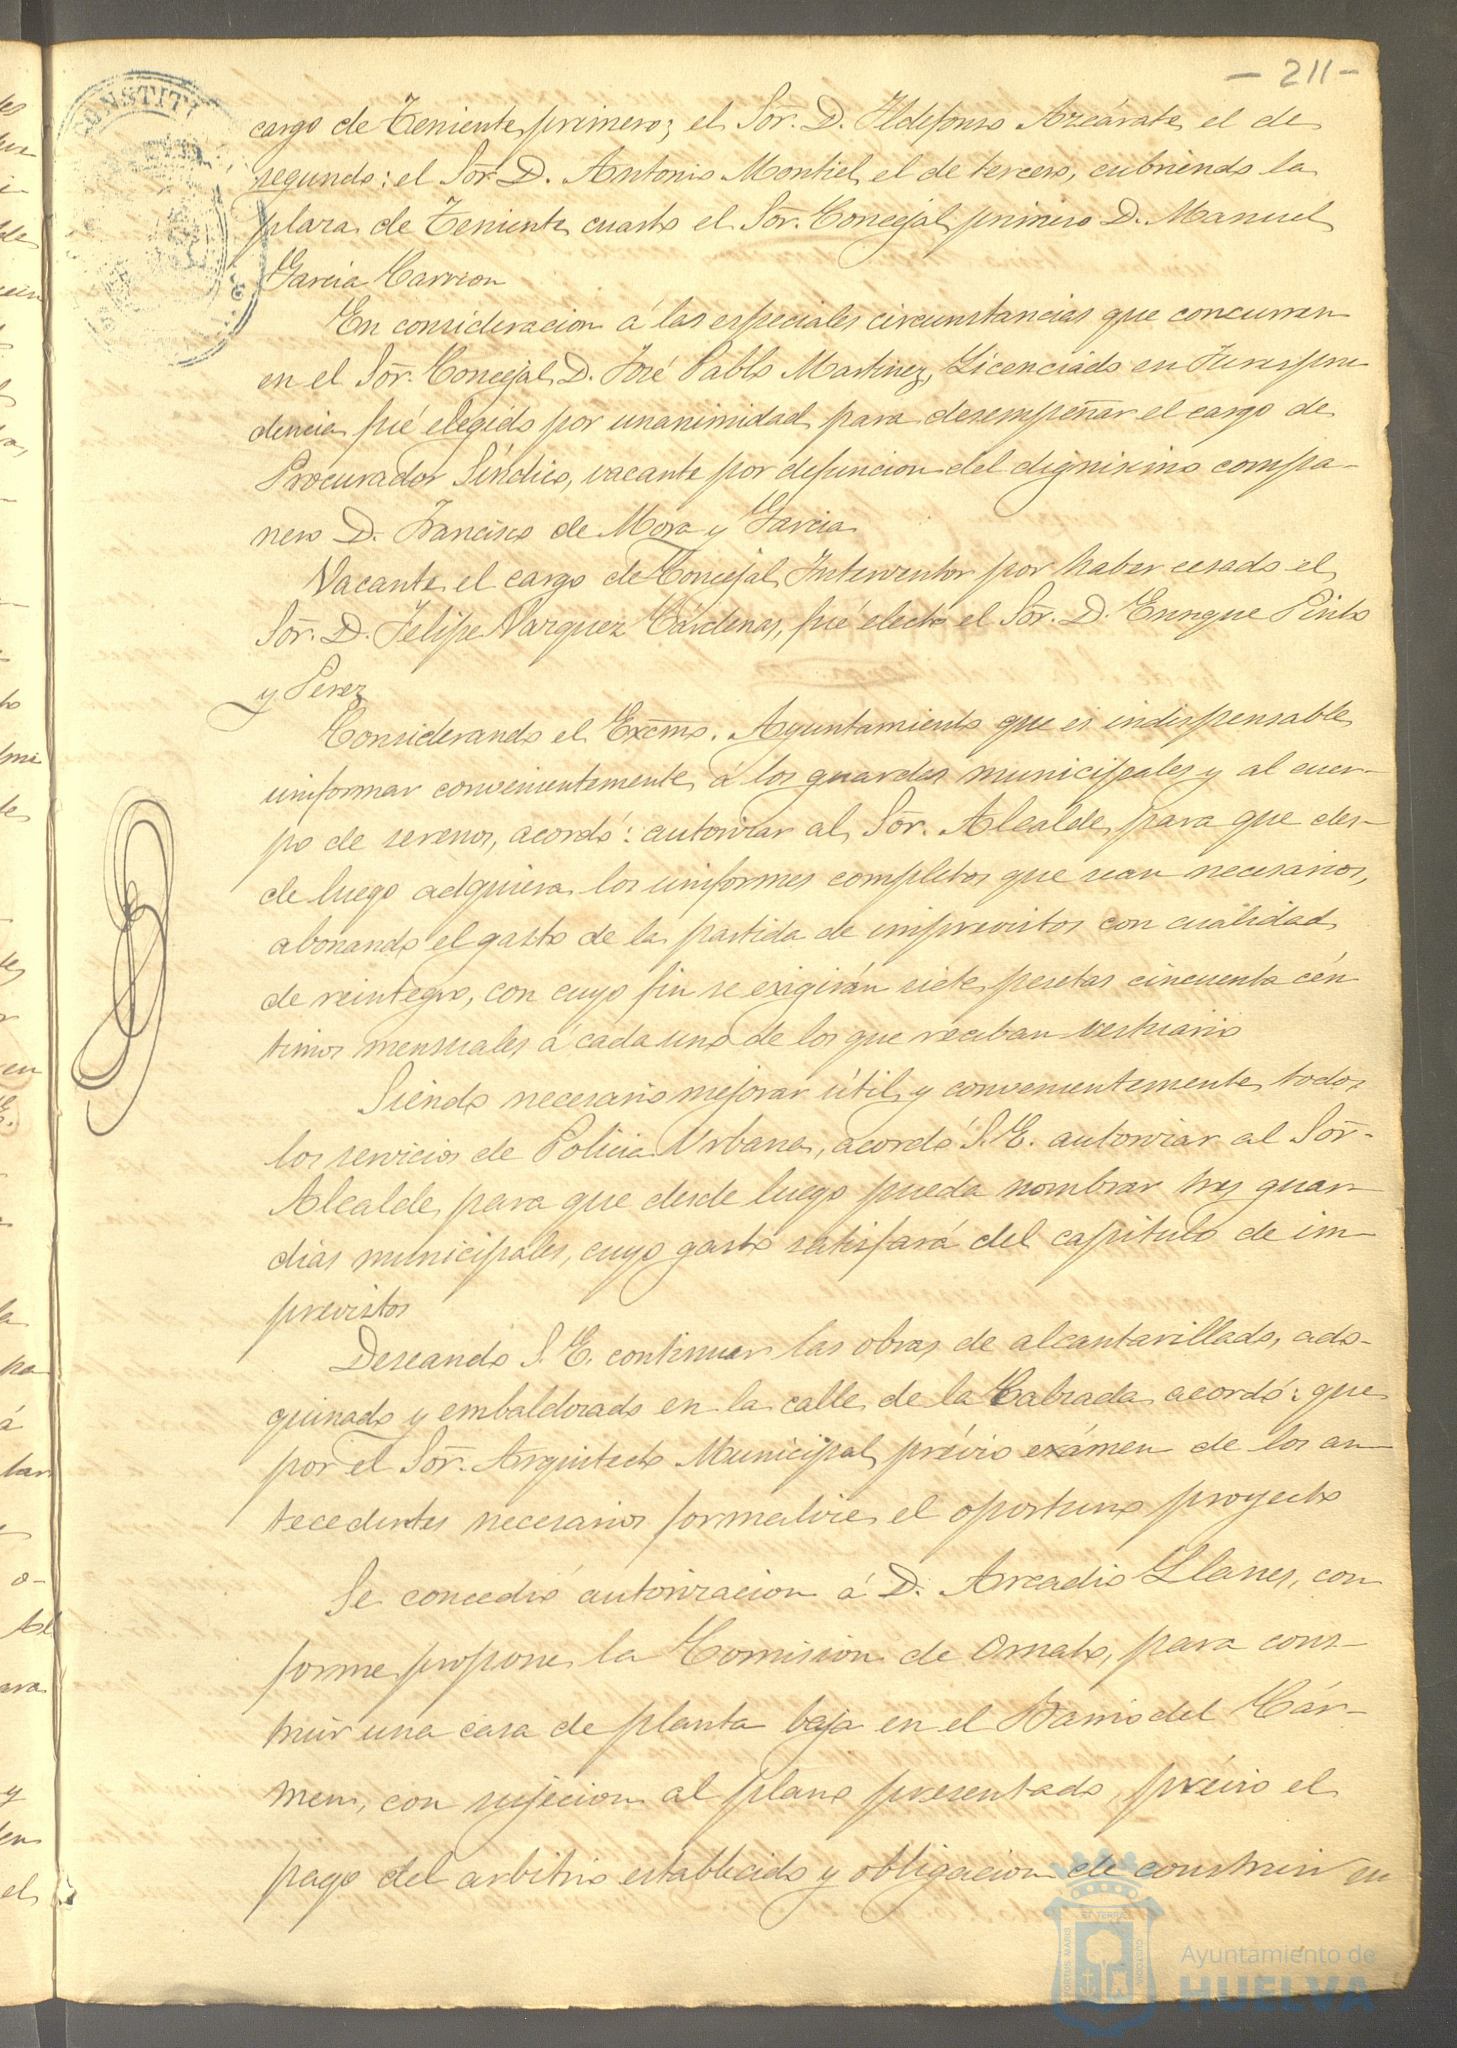 - 211 -
CONSTITU
cargo de Teniente primero; el Sōr. D. Ildefonso Azcárate, el de
segundo: el Sōr. D. Antonio Montiel, el de tercero, cubriendo la
plaza de Teniente cuarto el Sōr. Concejal primero D. Manuel
Garcia Carrion
En consideracion á las especiales circunstancias que concurren
en el Sōr. Concejal D. José Pablo Martinez, Licenciado en Jurispru
dencia fué elegido por unanimidad para desempeñar el cargo de
Procurador Síndico, vacante por defuncion del dignisimo compa-
nero D. Francisco de Mora y Garcia
Vacante el cargo de Concejal Interventor por haber cesado el
Sōr. D. Felipe Vazquez Cárdenas, fué electo el Sōr. D. Enrique Pinto
y Perez
Considerando el Excmo. Ayuntamiento que es indispensable
uniformar convenientemente á los guardas municipales y al cuer-
po de serenos, acordó: autorizar al Sōr. Alcalde para que des-
de luego adquiera los uniformes completos que sean necesarios,
abonando el gasto de la partida de imprevistos con cualidad
de reintegro, con cuyo fin se exigirán siete pesetas cincuenta cén
timos mensuales á cada uno de los que reciban vestuario
Siendo necesario mejorar útil y convenientemente todos
los servicios de Policia Urbana, acordó S.E. autorizar al Sōr.
Alcalde para que desde luego pueda nombrar tres guar
dias municipales, cuyo gasto satisfará del capitulo de im-
previstos
Deseando S.E. continuar las obras de alcantarillado, ado-
quinado y embaldosado en la calle de la Calzada acordó: que
por el Sōr. Arquitecto Municipal, prévio exámen de los an-
tecedentes necesarios formalice el oportuno proyecto
Se concedió autorizacion á D. Arcadio Llanes, con
forme propone la Comision de Ornato, para cons-
truir una casa de planta baja en el Barrio del Cár-
men, con sujecion al plano presentado, prévio el
pago del arbitrio establecido y obligacion de construir su
PORTUS MARIS
ET TERRAE
CUSTODIA
Ayuntamiento de
HUELVA